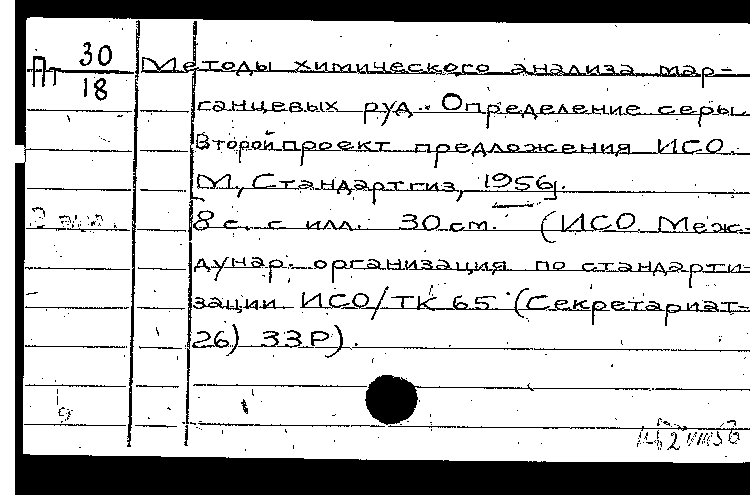 Пт 30/18 Методы химического анализа мар-
ганцевых руд. Определение серы.
Второй проект предложения ИСО.
М, Стандартгиз, 1956г.
2 экз. 8 с. с илл. 30 см. (ИСО. Меж-
дунар. организация по стандарти-
зации ИСО/ТК 65 (Секретариат-
26) 33Р).